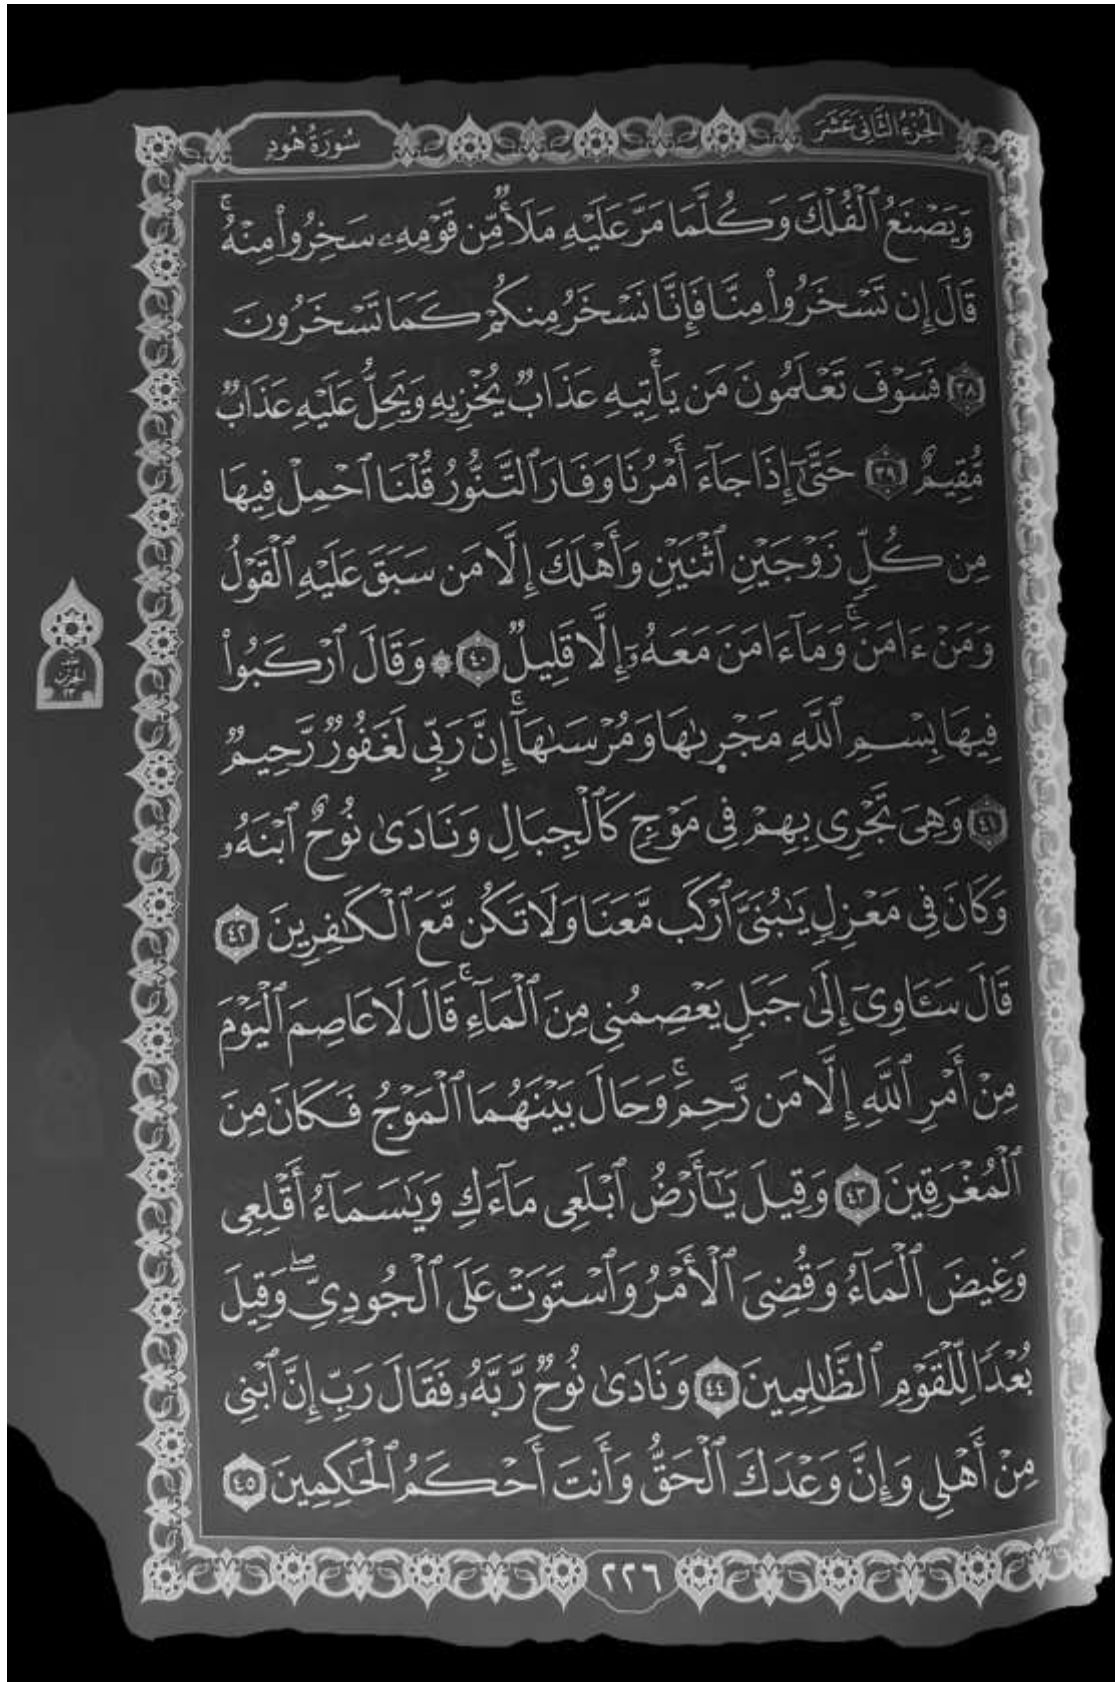 الجزء الثاني عشر
سورة هود
وَيَصْنَعُ ٱلْفُلْكَ وَكُلَّمَا مَرَّ عَلَيْهِ مَلَأٌ مِّن قَوْمِهِۦ سَخِرُوا۟ مِنْهُ ۚ
قَالَ إِن تَسْخَرُوا۟ مِنَّا فَإِنَّا نَسْخَرُ مِنكُمْ كَمَا تَسْخَرُونَ
٣٨ فَسَوْفَ تَعْلَمُونَ مَن يَأْتِيهِ عَذَابٌ يُخْزِيهِ وَيَحِلُّ عَلَيْهِ عَذَابٌ
مُّقِيمٌ ٣٩ حَتَّىٰٓ إِذَا جَآءَ أَمْرُنَا وَفَارَ ٱلتَّنُّورُ قُلْنَا ٱحْمِلْ فِيهَا
مِن كُلٍّ زَوْجَيْنِ ٱثْنَيْنِ وَأَهْلَكَ إِلَّا مَن سَبَقَ عَلَيْهِ ٱلْقَوْلُ
وَمَنْ ءَامَنَ ۚ وَمَآ ءَامَنَ مَعَهُۥٓ إِلَّا قَلِيلٌ ٤٠ ۞ وَقَالَ ٱرْكَبُوا۟
فِيهَا بِسْمِ ٱللَّهِ مَجْر۪ىٰهَا وَمُرْسَىٰهَآ ۚ إِنَّ رَبِّى لَغَفُورٌ رَّحِيمٌ
٤١ وَهِىَ تَجْرِى بِهِمْ فِى مَوْجٍ كَٱلْجِبَالِ وَنَادَىٰ نُوحٌ ٱبْنَهُۥ
وَكَانَ فِى مَعْزِلٍ يَـٰبُنَىَّ ٱرْكَب مَّعَنَا وَلَا تَكُن مَّعَ ٱلْكَـٰفِرِينَ ٤٢
قَالَ سَـَٔاوِىٓ إِلَىٰ جَبَلٍ يَعْصِمُنِى مِنَ ٱلْمَآءِ ۚ قَالَ لَا عَاصِمَ ٱلْيَوْمَ
مِنْ أَمْرِ ٱللَّهِ إِلَّا مَن رَّحِمَ ۚ وَحَالَ بَيْنَهُمَا ٱلْمَوْجُ فَكَانَ مِنَ
ٱلْمُغْرَقِينَ ٤٣ وَقِيلَ يَـٰٓأَرْضُ ٱبْلَعِى مَآءَكِ وَيَـٰسَمَآءُ أَقْلِعِى
وَغِيضَ ٱلْمَآءُ وَقُضِىَ ٱلْأَمْرُ وَٱسْتَوَتْ عَلَى ٱلْجُودِىِّ ۖ وَقِيلَ
بُعْدًا لِّلْقَوْمِ ٱلظَّـٰلِمِينَ ٤٤ وَنَادَىٰ نُوحٌ رَّبَّهُۥ فَقَالَ رَبِّ إِنَّ ٱبْنِى
مِنْ أَهْلِى وَإِنَّ وَعْدَكَ ٱلْحَقُّ وَأَنتَ أَحْكَمُ ٱلْحَـٰكِمِينَ ٤٥
نصف
الحزب
٢٣
٢٢٦